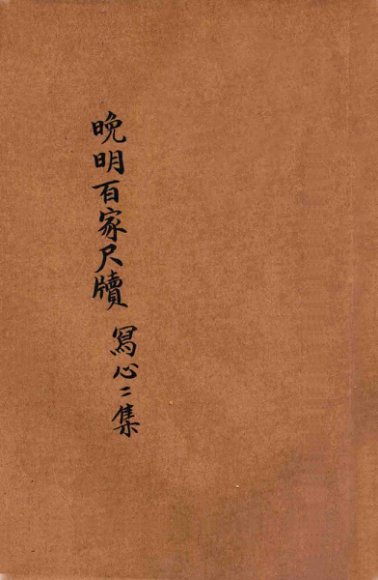 晚明百家尺牘 寫心二集